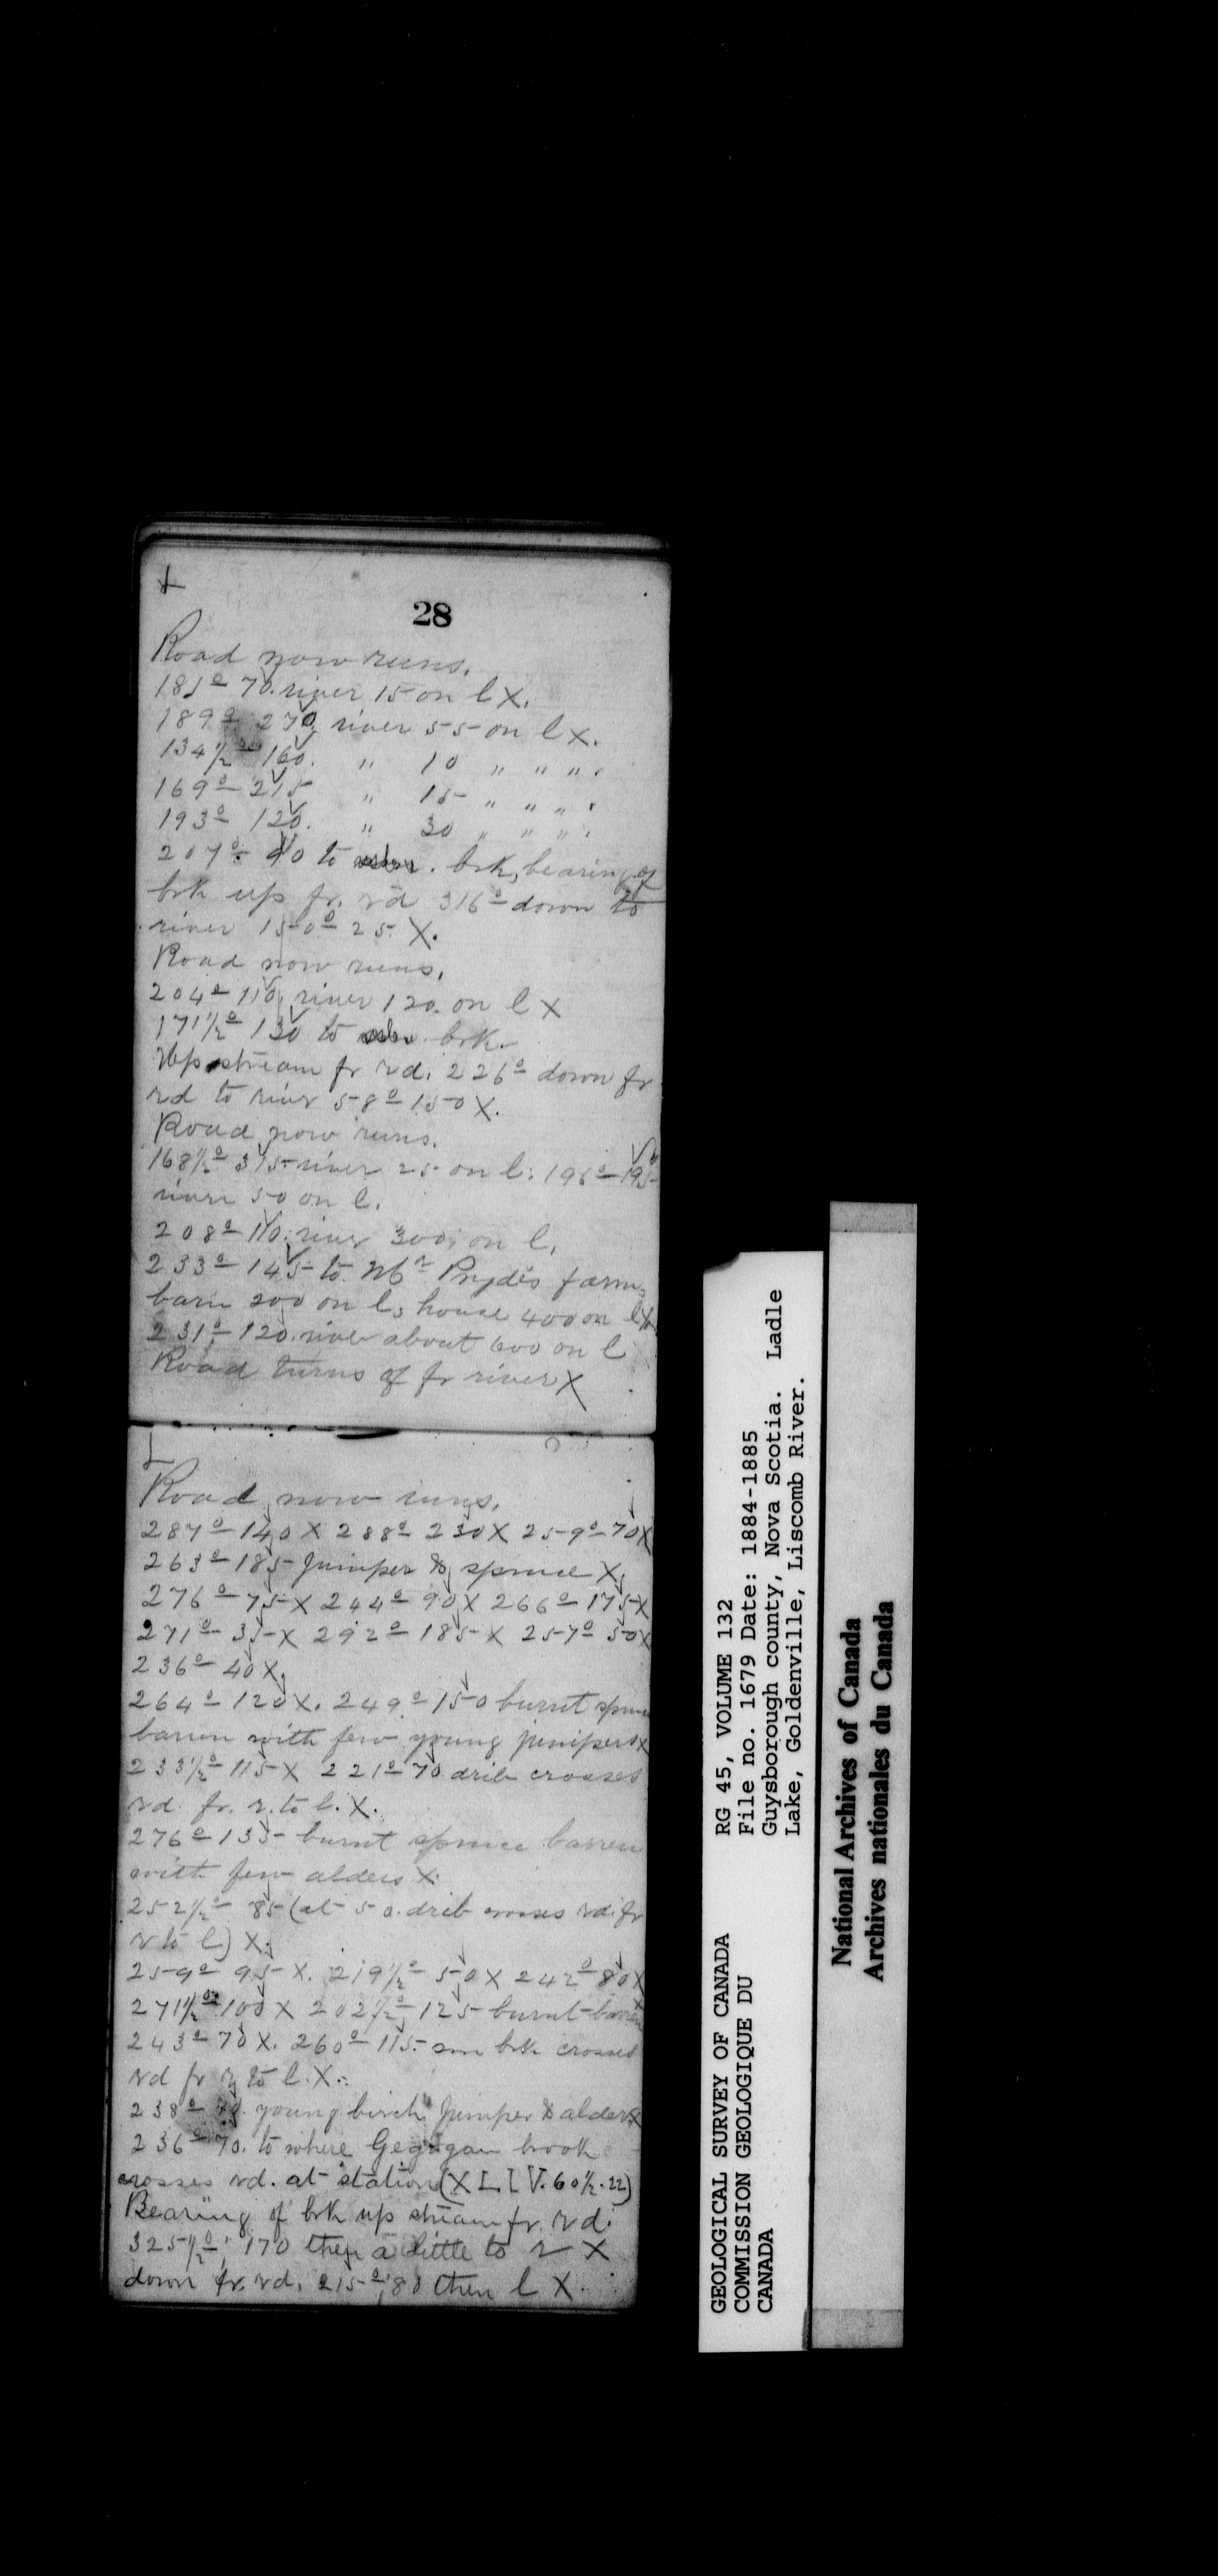 28
Road now runs.
181° 70. river 15 on l X.
189° 270, river 55 on l X.
134½° 160. " 10 " " " .
169° 215 " 15 " " " .
193° 120. " 30 " " " .
207° 90 to brk, bearing of
brk up fr. rd 316° down to
river 150° 25 X.
Road now runs.
204° 110, river 120. on l X
171½° 130 to brk.
Up stream fr rd. 226° down fr
rd to river 58° 150 X.
Road now runs.
168½° 315 river 25 on l. 196° 195
river 50 on l.
208° 110. river 300, on l.
233° 145 to Mr Pryde's farm,
barn 200 on l, house 400 on l X
231° 120. river about 600 on l
Road turns of fr river X
Road now runs.
287° 140 X 288° 230 X 259° 70 X
263° 185 Juniper & spruce X.
276° 75 X 244° 90 X 266° 175 X
271° 35 X 292° 185 X 257° 50 X
236° 40 X.
264° 120 X. 249° 150 burnt spruce
barren with few young junipers X
233½° 115 X 221° 70 drib crosses
rd. fr. r. to l. X.
276° 135 burnt spruce barren
with few alders X.
252½° 85 (at 50. drib crosses rd. fr
r to l) X.
259° 95 X. 219½° 50 X 242° 80 X
271½° 100 X 202½° 125 burnt barren
243° 70 X. 260° 115. sm brk crosses
rd fr r to l. X.
238° young birch Juniper & alders X
236° 70. to where Gegogan brook
crosses rd. at station (X L. I V. 60½. 22)
Bearing of brk up stream fr. rd.
325½° 170 then a little to r X
down fr. rd. 215° 80 then l X.
GEOLOGICAL SURVEY OF CANADA
COMMISSION GEOLOGIQUE DU
CANADA
RG 45, VOLUME 132
File no. 1679 Date: 1884-1885
Guysborough county, Nova Scotia. Ladle
Lake, Goldenville, Liscomb River.
National Archives of Canada
Archives nationales du Canada